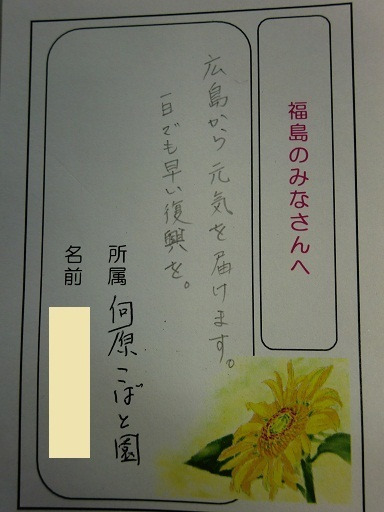 福島のみなさんへ
広島から元気を届けます。
一日でも早い復興を。
所属 何原こばと園
名前